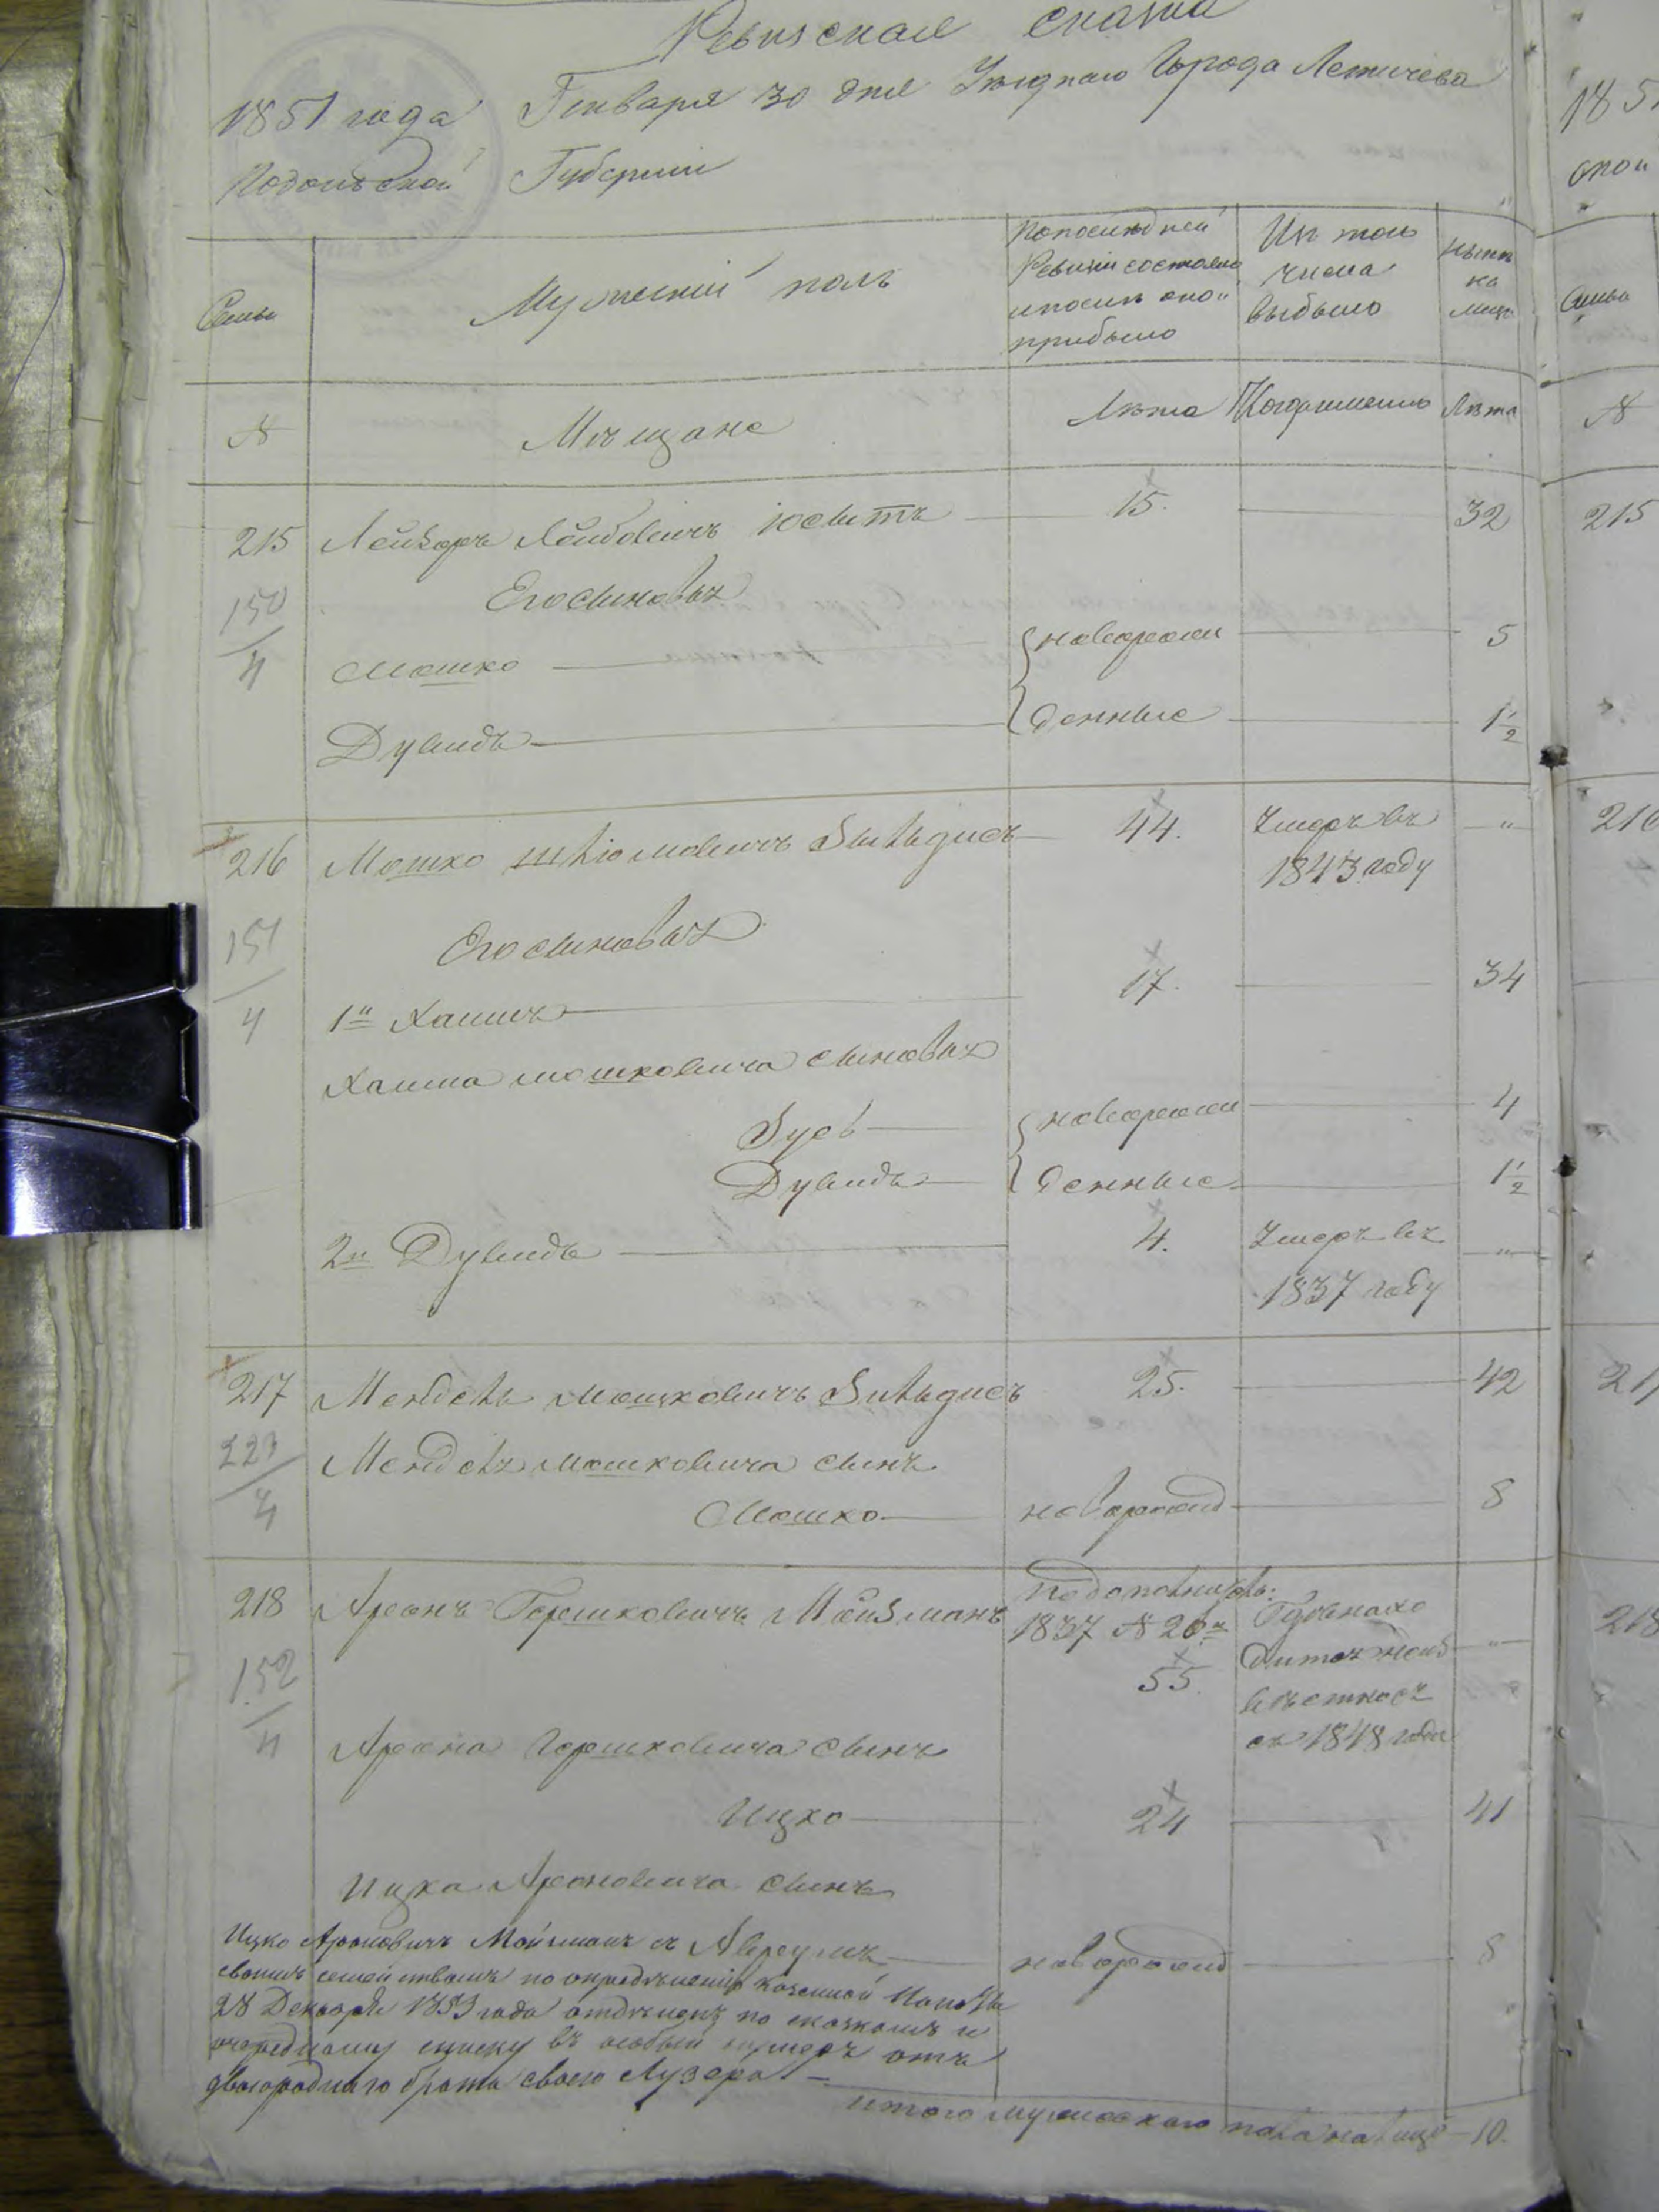 Ревизская сказка
1851 года Генваря 30 дня Уезднаго Города Летичева
Подольской Губернии
Семьи
Мужеский полъ
По последней Ревизии состояло и после оной прибыло
Из того числа выбыло
Ныне на лицо
Семьи
№
Мещане
Лета
Когда именно
Лета
№
215 Лейзоръ Лейбовичъ 15. 32
150/4
Его сыновья
Мошко новорож 5
Дувидъ денные 1 1/2
216 Мошко Шліомовичъ Зильдисъ 44. Умеръ въ 1843 году "
151/4
Его сыновья
1й Хаимъ 17. 34
Хаима Мошковича сыновья
Зусь новорож 4
Дувидъ денные 1 1/2
2й Дувидъ 4. Умеръ въ 1837 году "
217 Мендель Мошковичъ Зильдисъ 25. 42
223/4
Мендель Мошковича сынъ
Мошко новорожд 8
218 Аронъ Гершковичъ Мойзманъ 1837 № 26й 55.
152/4
съ 1848 года
Арона Гершковича сынъ
Ицко 24 41
Ицка Ароновича сынъ
Аврумъ новорожд 8
Ицко Ароновичъ Мойзманъ съ
своимъ семействомъ по определению казенной Палаты
28 Декабря 1853 года отделенъ по сказкамъ и
очередному списку въ особый нумеръ отъ
двоюроднаго брата своего Лузера
Итого мужескаго пола на лицо 10.
185
оной
Семьи
215
216
217
218